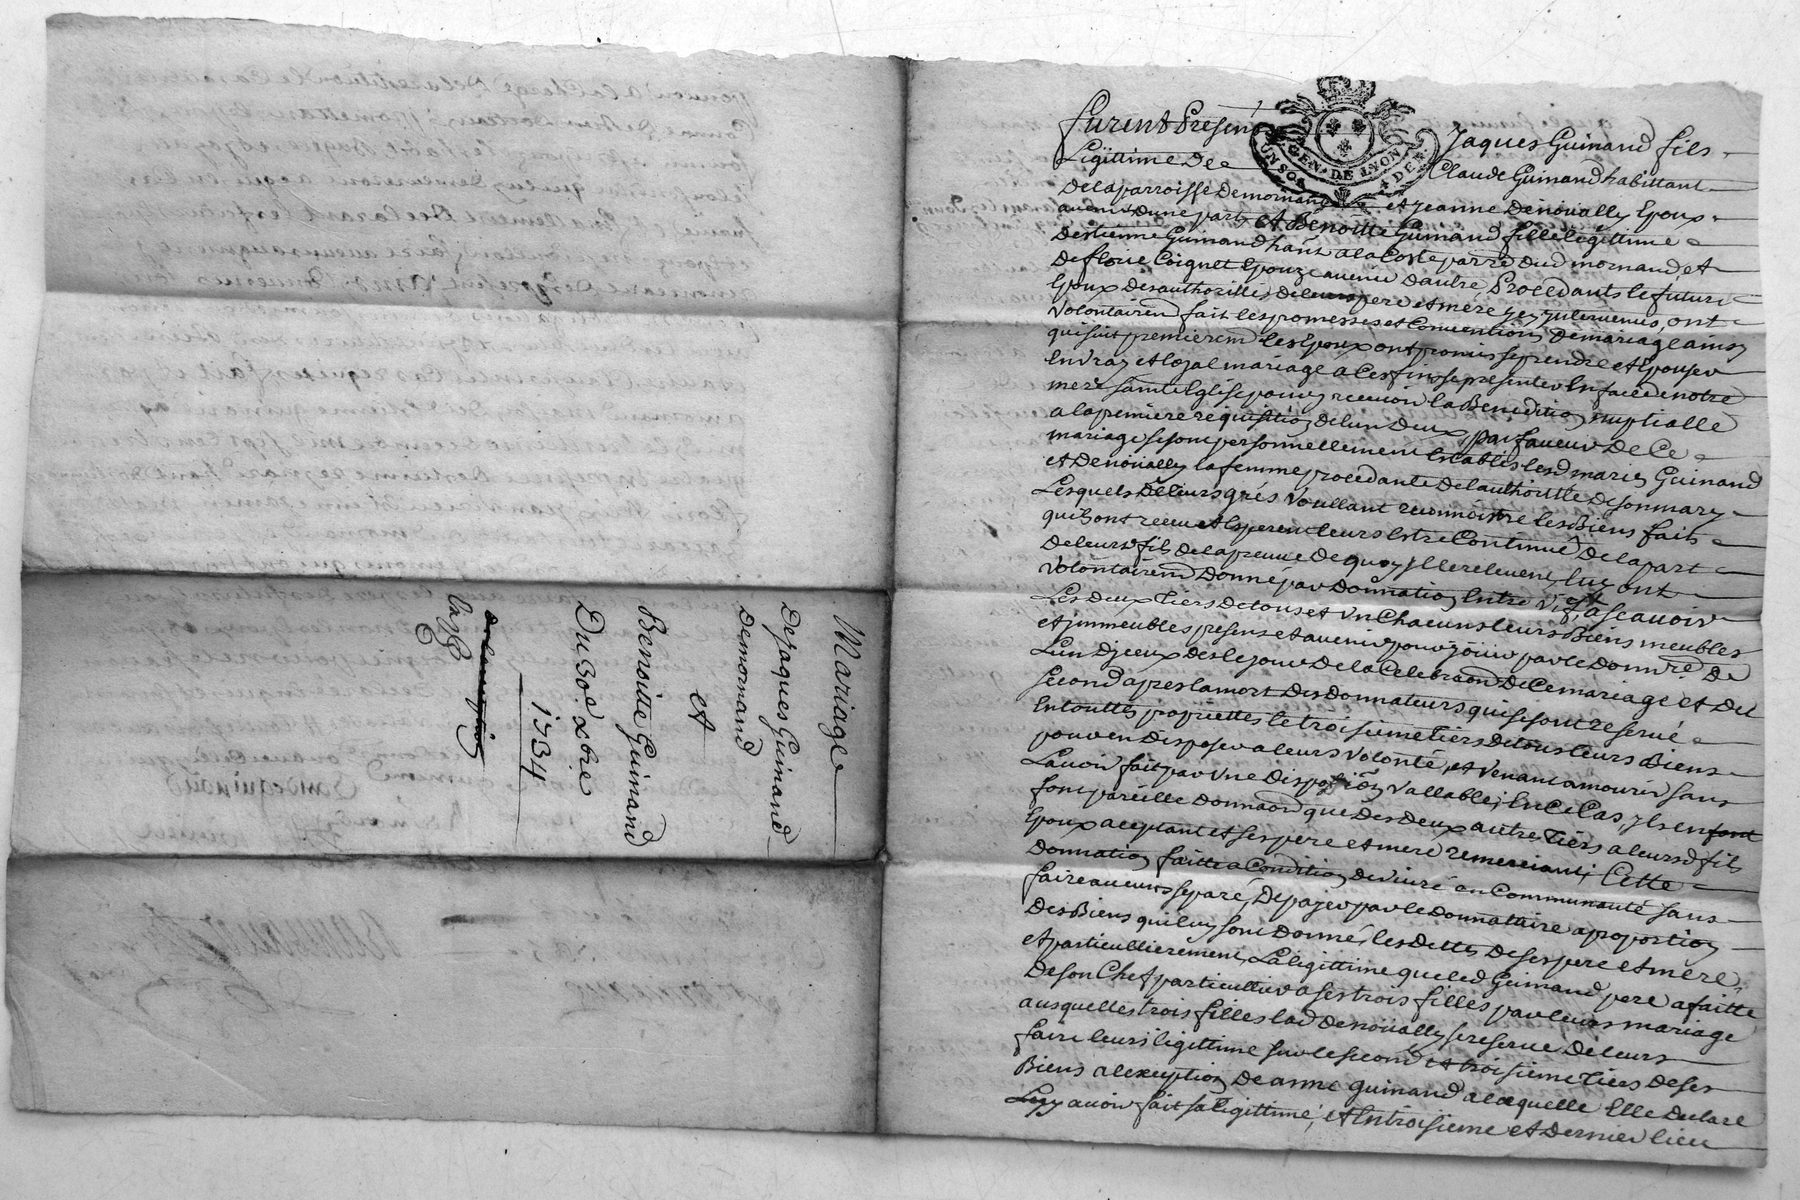 Mariage
De Jaques Guinand
De mornand
et
Benoitte Guinand
Du 8e. xbre
1734
Furent Presens Jaques Guinand fils
GEN. DE LYON
UN SOL 4 DE.
Legittime De Claude Guinand habittant
De la parroisse De mornand et Jeanne Denoüally Epoux
avenir Dune part, et Benoitte Guinand fille legittime
Destienne Guinand hañt a la Coste parre Dud mornand, et
De florie Coignet Epouze avenir Dautre Procedants le futurs
Epoux Des authorittés De leurs pere et mere jcy jntervenus, ont
volontairemt fait les promesses et Conventions De mariage ainsy
qui suit premieremt les Epoux ont promis se prendre et Epouser
En vray et loyal mariage a Ces fins se presenter En face de notre
mere sainte Eglise pour y recevoir la Benediction nuptialle
a la premiere requisition de lun Deux, par faveur De Ce
mariage se sont personnellement Establis lesd mariés Guinand
et Denoüally la femme procedante De lauthoritté De son mary
Lesquels De leurs grés voullant reconnoistre les Biens faits
quils ont receu et Esperent leurs Estre Continué De la part
De leurs fils De la preuve De quoy jls le relevent, luy ont
volontairemt Donné par Donnation Entre vifs a scavoir
Les Deux Tiers De tous et un Chacuns leurs Biens meubles
et jmmeubles presens et avenir pour joüir par le Donnre. De
Lun Djceux Des le jour De la Celebraon De Ce mariage et Del
second apres la mort Des Donnateurs qui se sont reservé
En touttes proprietés le troisieme tiers De tous leurs Biens
pour en Disposer a leurs volonté, et venant a mourir sans
Lavoir fait par une Disposition vallable, En Ce Cas, jls en font
font pareille Donnaon que Des Deux autres Tiers a leursd fils
Epoux aceptant et ses pere et mere remerciant, Cette
Donnation faitte a Condition De vivre en Communauté sans
faire aucuns separé, De payer par le Donnattaire a proportion
Des Biens qui luy sont Donné, les Dettes De ses pere et mere
et particullierement, La legittime que led Guinand pere a faitte
De son Chef particullier a ses trois filles par leurs mariage
ausquelles trois filles lad Denoüally se reserve De leurs
faire leurs legittime sur le second et troisieme Tiers De ses
Biens a lexeption De anne Guinand a laquelle Elle Declare
Luy avoir fait sa legittime, et En troisieme et Dernier lieu